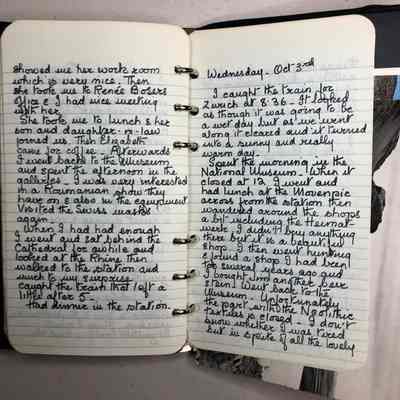 showed me her work room
which is very nice. Then
she took me to Renée Bosers
office & I had nice meeting
with her.
She took me to lunch & her
son and daughter-in-law
joined us. Then Elizabeth
came for coffee. Afterwards
I went back to the Museum
and spent the afternoon in the
galleries. I was very interested
in a Romanian show they
have on & also in the equipment
Visited the Swiss masks
again.
When I had had enough
I went and sat behind the
Cathedral for awhile and
looked at the Rhine then
walked to the station and
much to my surprise
caught the train that left a
little after 5 -
Had dinner in the station.
Wednesday - Oct 3rd
I caught the train for
Zurich at 8:36 - It looked
as though it was going to be
a wet day but as we went
along it cleared and it turned
into a sunny and really
warm day -
Spent the morning in the
National Museum. When it
closed at 12 I went and
had lunch at the Movenpic
across from the station then
wandered around the shops
a bit including the Heimat-
werk. I didn't buy anything
there but it is a beautiful
shop. I then went hunting
& found a shop I had been
to several years ago and
I bought another beer
stein. Went back to the
Museum - Unfortunately
the part with the Neolithic
textiles is closed - I don't
know whether I was tired
but in spite of all the lovely